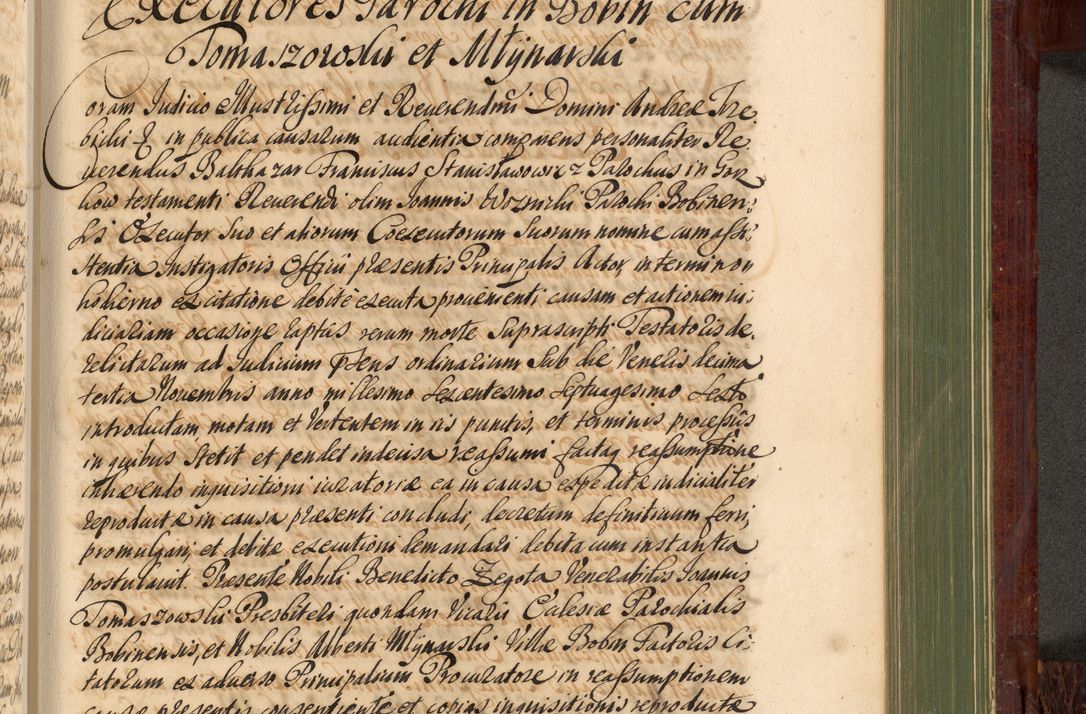 Executores Parochi in Bobin cum
Tomaszowski et Młynarski
Coram Judicio Illustrissimi et Reverendissimi Domini Andreæ Trze-
bicki & in publica causarum audientia comparens personaliter Re-
verendus Balthazar Franciscus Stanisławowicz Parochus in Gor-
kow testamenti Reverendi olim Joannis Woznicki Parochi Bobinen-
sis Executor suo et aliorum Coexecutorum suorum nomine cum assi-
stentia Instigatoris Officii præsentis Principalis Actor, in termino
hodierno ex citatione debitè executa provenienti causam et actionem iu-
diciariam occasione raptus rerum morte suprascripti Testatoris de-
relictarum ad Judicium præsens ordinarium sub die Veneris decima
tertia Novembris anno millesimo sexcentesimo septuagesimo sexto
introductam motam et vertentem in iis punctis, et terminis processus
in quibus stetit et pendet indecisa reassumi factaq reassumptione
inhærendo inquisitioni iuratoriæ ea in causa expeditæ iudicialiter
reproductæ in causa præsenti concludi, decretum definitivum ferri,
promulgari, et debitæ executioni demandari debita cum instantia
postulavit. Præsente Nobili Benedicto Zegota Venerabilis Joannis
Tomaszowski Presbiteri quondam Vicarii Ecclesiæ Parochialis
Bobinensis, et Nobilis Alberti Młynarski Villæ Bobin Factoris Ci-
tatorum ex adverso Principalium Procuratore in reassumptionem
causæ præsentis consentiente et copias inquisitionis reproductæ